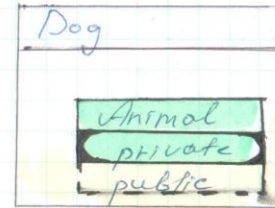 Dog
Animal
private
public